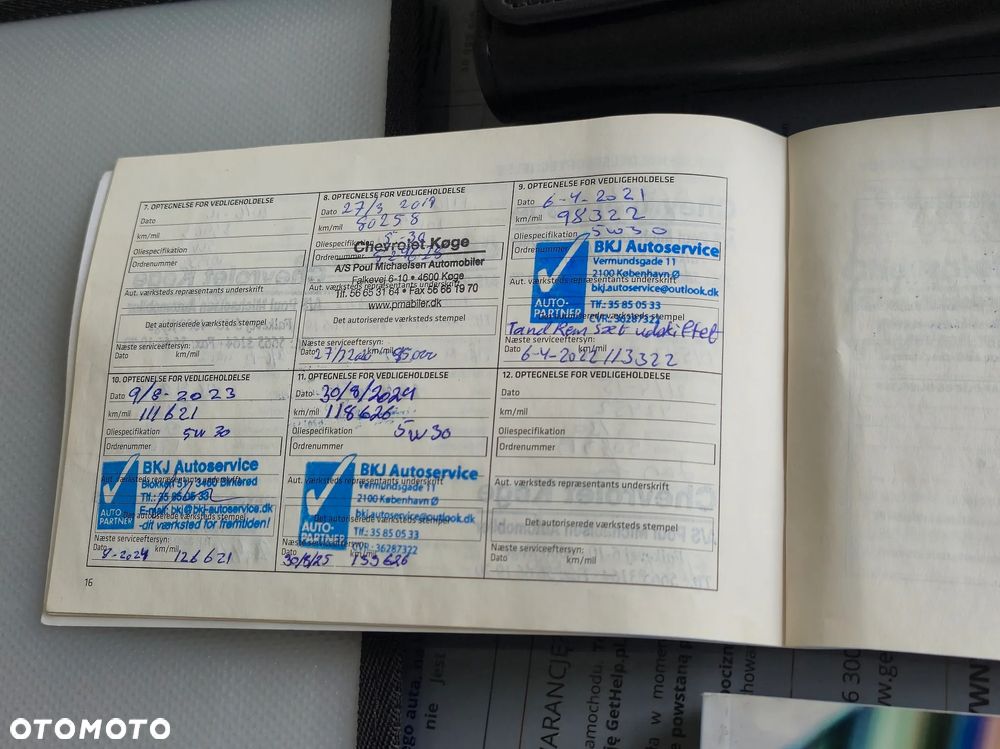 7. OPTEGNELSE FOR VEDLIGEHOLDELSE
Dato
km/mil
Oliespecifikation
Ordrenummer
Aut. værksteds repræsentants underskrift
Det autoriserede værksteds stempel
Næste serviceeftersyn:
Dato km/mil
8. OPTEGNELSE FOR VEDLIGEHOLDELSE
Dato 27/3 2019
km/mil 80258
Oliespecifikation 5-30
Ordrenummer
Chevrolet Køge
A/S Poul Michaelsen Automobiler
Falkevej 6-10 • 4600 Køge
Aut. værksteds repræsentants underskrift
Tlf. 56 65 31 64 • Fax 56 66 19 70
www.pmabiler.dk
Det autoriserede værksteds stempel
Næste serviceeftersyn:
Dato km/mil 95000
9. OPTEGNELSE FOR VEDLIGEHOLDELSE
Dato 6-4-2021
km/mil 98322
Oliespecifikation 5W30
Ordrenummer
BKJ Autoservice
Vermundsgade 11
2100 København Ø
bkj.autoservice@outlook.dk
Tlf.: 35 85 05 33
CVR.: 36287322
AUTO-
PARTNER
Tand Rem sæt udskiftet
Næste serviceeftersyn:
Dato 6-4-2022 km/mil 113322
10. OPTEGNELSE FOR VEDLIGEHOLDELSE
Dato 9/8-2023
km/mil 111621
Oliespecifikation 5W30
Ordrenummer
BKJ Autoservice
Aut. værksteds repræsentants underskrift
Blokken 57, 3460 Birkerød
Tlf.: 35 85 05 33
E-mail: bkj@bkj-autoservice.dk
-dit værksted for fremtiden!
AUTO-
PARTNER
Det autoriserede værksteds stempel
Næste serviceeftersyn:
Dato 8-2024 km/mil 126621
11. OPTEGNELSE FOR VEDLIGEHOLDELSE
Dato 30/8/2024
km/mil 118626
Oliespecifikation 5W30
Ordrenummer
BKJ Autoservice
Aut. værksteds repræsentants underskrift
Vermundsgade 11
2100 København Ø
bkj.autoservice@outlook.dk
Det autoriserede værksteds stempel
Tlf.: 35 85 05 33
CVR.: 36287322
AUTO-
PARTNER
Næste serviceeftersyn:
Dato 30/8/25 km/mil
12. OPTEGNELSE FOR VEDLIGEHOLDELSE
Dato
km/mil
Oliespecifikation
Ordrenummer
Aut. værksteds repræsentants underskrift
Det autoriserede værksteds stempel
Næste serviceeftersyn:
Dato km/mil
16
OTOMOTO